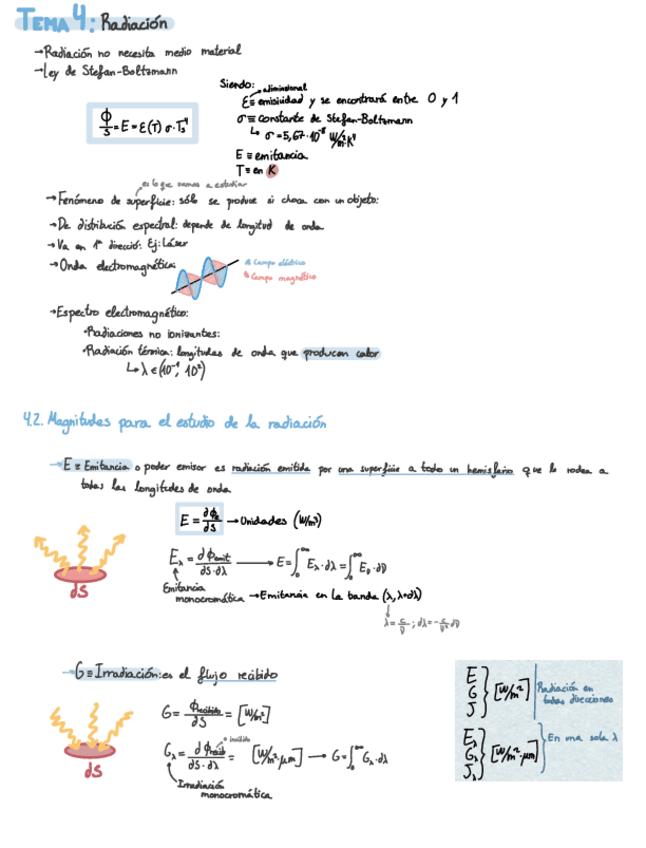 TEMA 4: Radiación
→Radiación no necesita medio material
→Ley de Stefan-Boltzmann
Φ/S = E = ε(T) σ·Ts⁴
Siendo:
adimensional
ε≡ emisividad y se encontrará entre 0 y 1
σ ≡ constante de Stefan-Boltzmann
↳ σ = 5,67·10⁻⁸ W/m²·K⁴
E ≡ emitancia
T ≡ en K
es lo que vamos a estudiar
→Fenómeno de superficie: sólo se produce si choca con un objeto:
→De distribución espectral: depende de longitud de onda
→Va en 1ª direcció: Ej: Láser
→Onda electromagnética:
Campo eléctrico
Campo magnético
→Espectro electromagnético:
•Radiaciones no ionizantes:
•Radiación térmica: longitudes de onda que producen calor
↳ λ ∈ (10⁻¹, 10²)
4.2. Magnitudes para el estudio de la radiación
→E ≡ Emitancia o poder emisor es radiación emitida por una superficie a todo un hemisferio que le rodea a
todas las longitudes de onda
E = ∂Φe/∂S → Unidades (W/m²)
Eλ = ∂Φemit/∂S·∂λ → E = ∫₀^∞ Eλ·dλ = ∫₀^∞ Eν·dν
Emitancia
monocromática → Emitancia en la banda (λ, λ+dλ)
λ = c/ν ; dλ = -c/ν² dν
dS
→G≡Irradiación: es el flujo recibido
G = ∂Φrecibido/∂S = [W/m²]
o incidido
Gλ = ∂Φrecib/∂S·∂λ = [W/m²·μm] → G = ∫₀^∞ Gλ·dλ
Irradiación
monocromática
dS
E
G
J
[W/m²]
Radiación en
todas direcciones
Eλ
Gλ
Jλ
[W/m²·μm]
En una sola λ